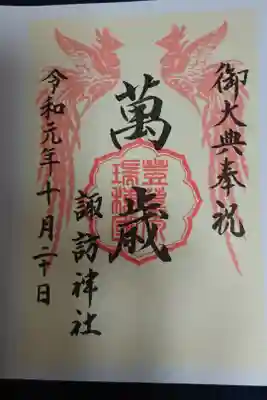 御大典奉祝
萬歳
諏訪神社
令和元年十月二十日